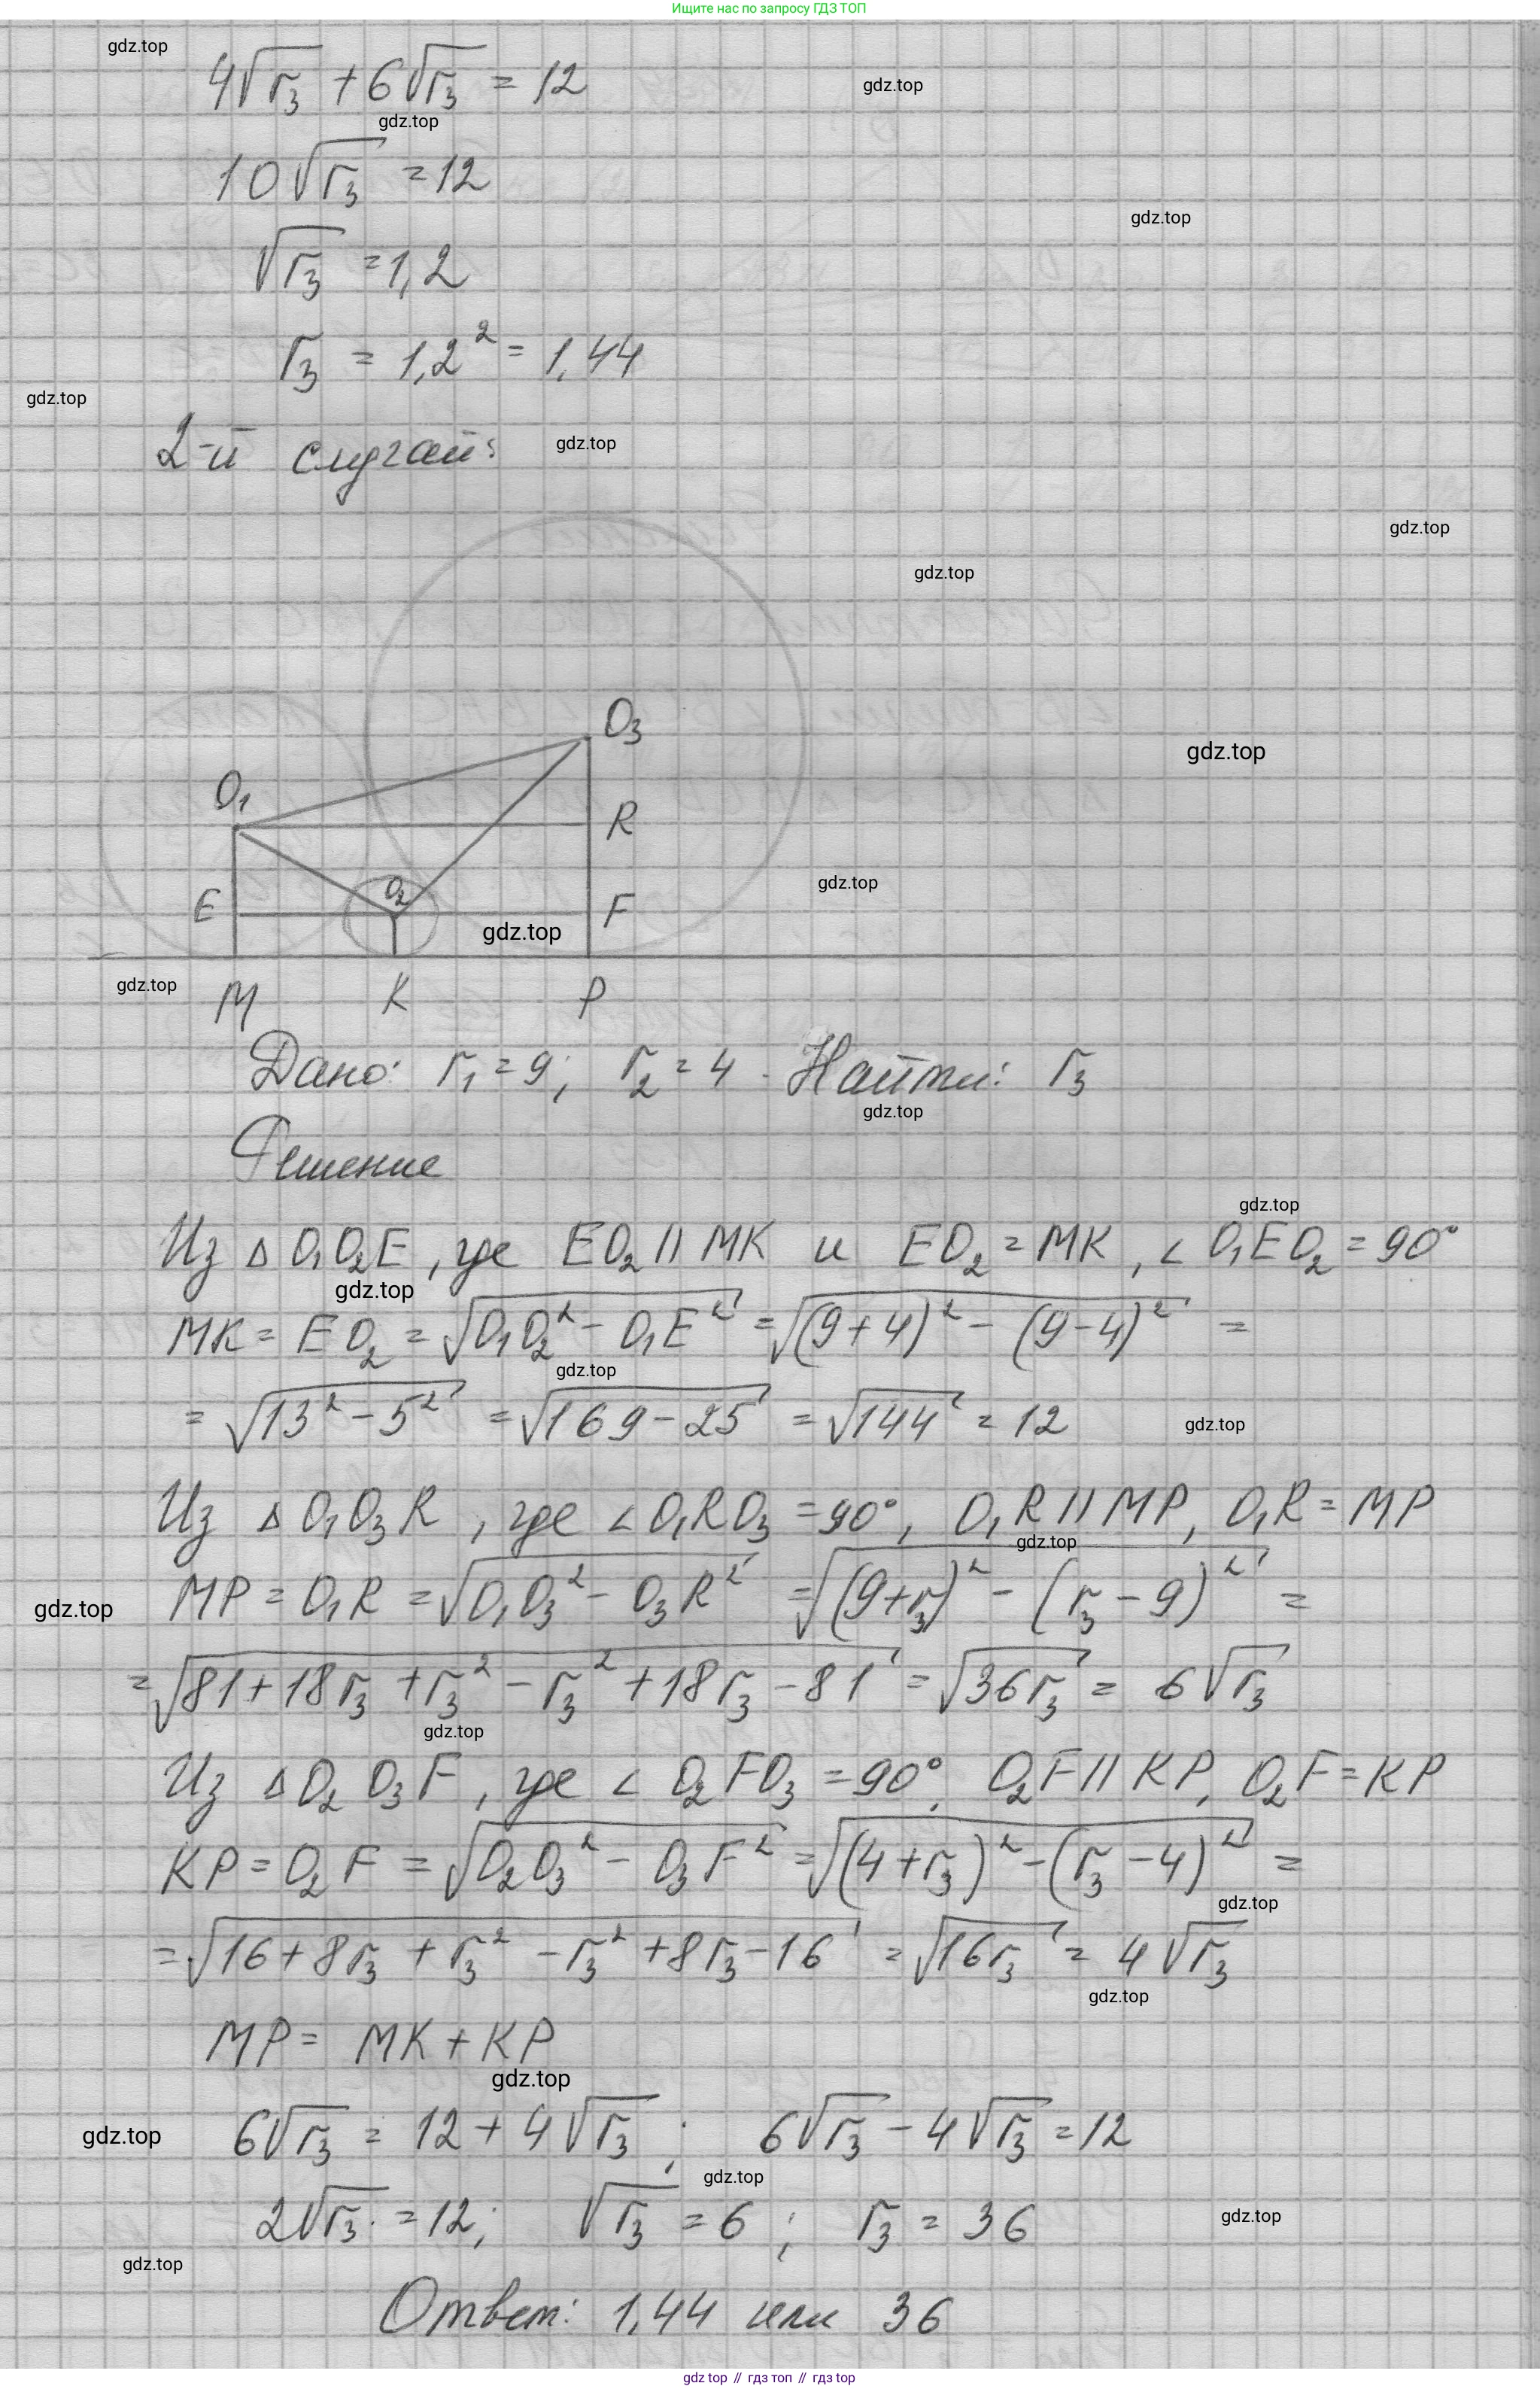 Ищите нас по запросу ГДЗ ТОП
gdz.top
4√r₃ + 6√r₃ = 12
gdz.top
gdz.top
10√r₃ = 12
gdz.top
√r₃ = 1,2
r₃ = 1,2² = 1,44
gdz.top
2-й случай:
gdz.top
gdz.top
gdz.top
O₃
gdz.top
O₁
R
gdz.top
E
O₂
F
gdz.top
gdz.top
M K P
Дано: r₁ = 9; r₂ = 4. Найти: r₃
gdz.top
Решение
gdz.top
Из △ O₁O₂E, где EO₂ || MK и EO₂ = MK, ∠ O₁EO₂ = 90°
gdz.top
MK = EO₂ = √(O₁O₂² - O₁E²) = √((9+4)² - (9-4)²) =
gdz.top
= √(13² - 5²) = √(169 - 25) = √144 = 12
gdz.top
Из △ O₁O₃R, где ∠ O₁RO₃ = 90°, O₁R || MP, O₁R = MP
gdz.top
MP = O₁R = √(O₁O₃² - O₃R²) = √((9+r₃)² - (r₃-9)²) =
gdz.top
= √(81 + 18r₃ + r₃² - r₃² + 18r₃ - 81) = √(36r₃) = 6√r₃
gdz.top
Из △ O₂O₃F, где ∠ O₂FO₃ = 90°, O₂F || KP, O₂F = KP
KP = O₂F = √(O₂O₃² - O₃F²) = √((4+r₃)² - (r₃-4)²) =
gdz.top
= √(16 + 8r₃ + r₃² - r₃² + 8r₃ - 16) = √(16r₃) = 4√r₃
gdz.top
MP = MK + KP
gdz.top
gdz.top
6√r₃ = 12 + 4√r₃; 6√r₃ - 4√r₃ = 12
gdz.top
2√r₃ = 12; √r₃ = 6; r₃ = 36
gdz.top
gdz.top
Ответ: 1,44 или 36
gdz top // гдз топ // гдз top